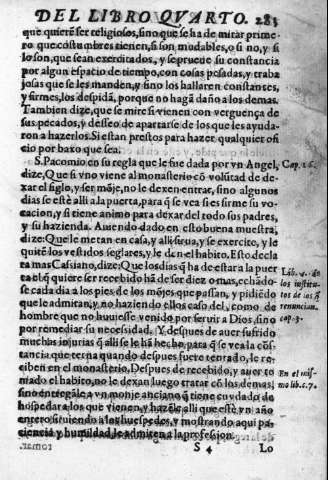 DEL LIBRO QVARTO. 283
que quierẽ ser religiosos, sino que se ha de mirar prime-
ro que costumbres tienen, si son modables, o si no, y si
lo son, que sean exercitados, y se prueue su constancia
por algun espacio de tiempo, con cosas pesadas, y traba
josas que se les manden, y sino los hallaren constantes,
y firmes, los despidã, porque no hagã daño a los demas.
Tambien dize, que se mire si vienen con verguença de
sus pecados, y desseo de apartarse de los que les ayuda-
ron a hazerlos. Si estan prestos para hazer qualquier ofi
cio por baxo que sea.
S. Pacomio en su regla que le fue dada por vn Angel, Cap. 26.
dize, Que si vno viene al monasterio cõ volũtad de de-
xar el siglo, y ser mõje, no le dexen entrar, sino algunos
dias se estè alli a la puerta, para q̃ se vea si es firme su vo-
cacion, y si tiene animo para dexar del todo sus padres,
y su hazienda. Auiendo dado en esto buena muestra,
dize: Que le metan en casa, y alli sirua, y se exercite, y le
quitẽ los vestidos seglares, y le dẽ el habito. Esto decla
ra mas Casiano, dize: Que los dias q̃ ha de estar a la puer
ta el q̃ quiere ser recebido hã de ser diez o mas, echãdo-
se cada dia a los pies de los mõjes, que passan, y pidiẽdo
que le admitan, y no haziendo ellos caso del, como de
hombre que no huuiesse venido por seruir a Dios, sino
por remediar su necesidad. Y despues de auer sufrido
muchas injurias q̃ alli se le hã hecho, para q̃ se vea la cõs-
tancia que terna quando despues fuere tentado, le re-
ciben en el monasterio. Despues de recebido, y auer to
mado el habito, no le dexan luego tratar cõ los demas,
sino entregãle a vn monje anciano q̃ tiene cuydado de
hospedar a los que vienen, y hazẽle alli que estè vn año
entero siruiendo a los huespedes, y mostrando aqui pa-
ciencia y humildad le admiten a la profession.
Lib. 4. de
los institu-
tos de los q̃
renuncian.
cap. 3.
En el mis-
mo lib. c. 7.
S 4 Lo